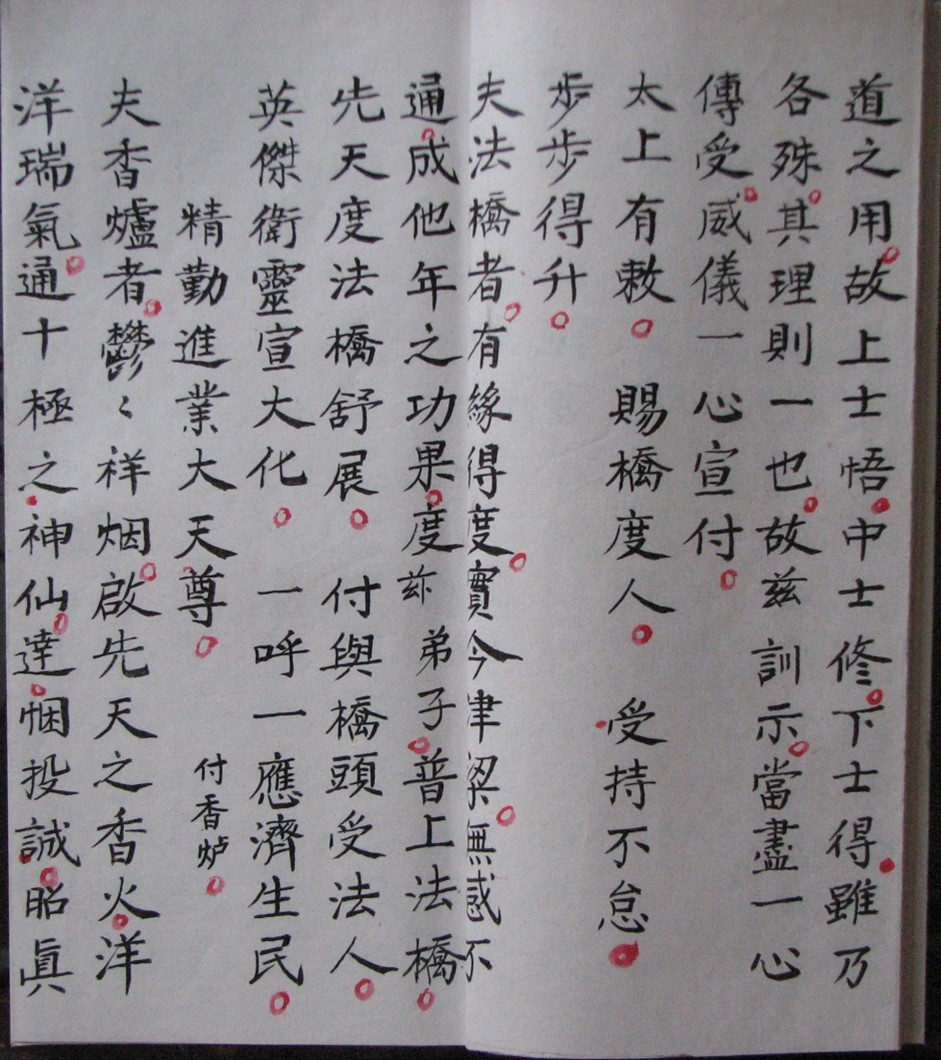 道之用故上士悟中士修下士得雖乃
各殊其理則一也故兹訓示當盡一心
傳受威儀一心宣付
太上有敕 賜橋度人 受持不怠
步步得升
夫法橋者有緣得度實今津梁無感不
通成他年之功果度兹弟子普上法橋
先天度法橋舒展 付與橋頭受法人
英傑衛靈宣大化 一呼一應濟生民
精勤進業大天尊 付香炉
夫香爐者鬱〻祥烟啟先天之香火洋
洋瑞氣通十極之神仙達悃投誠昭眞